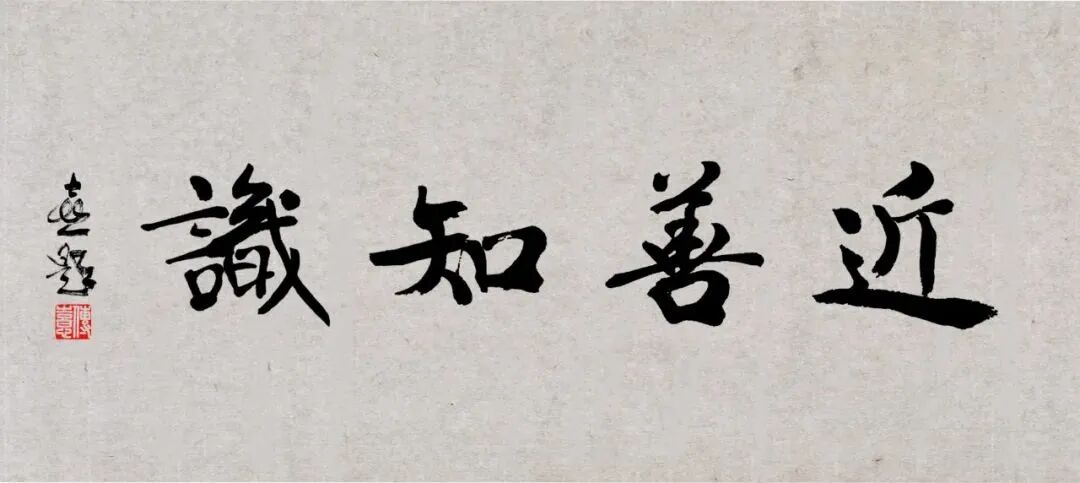 近善知識
題